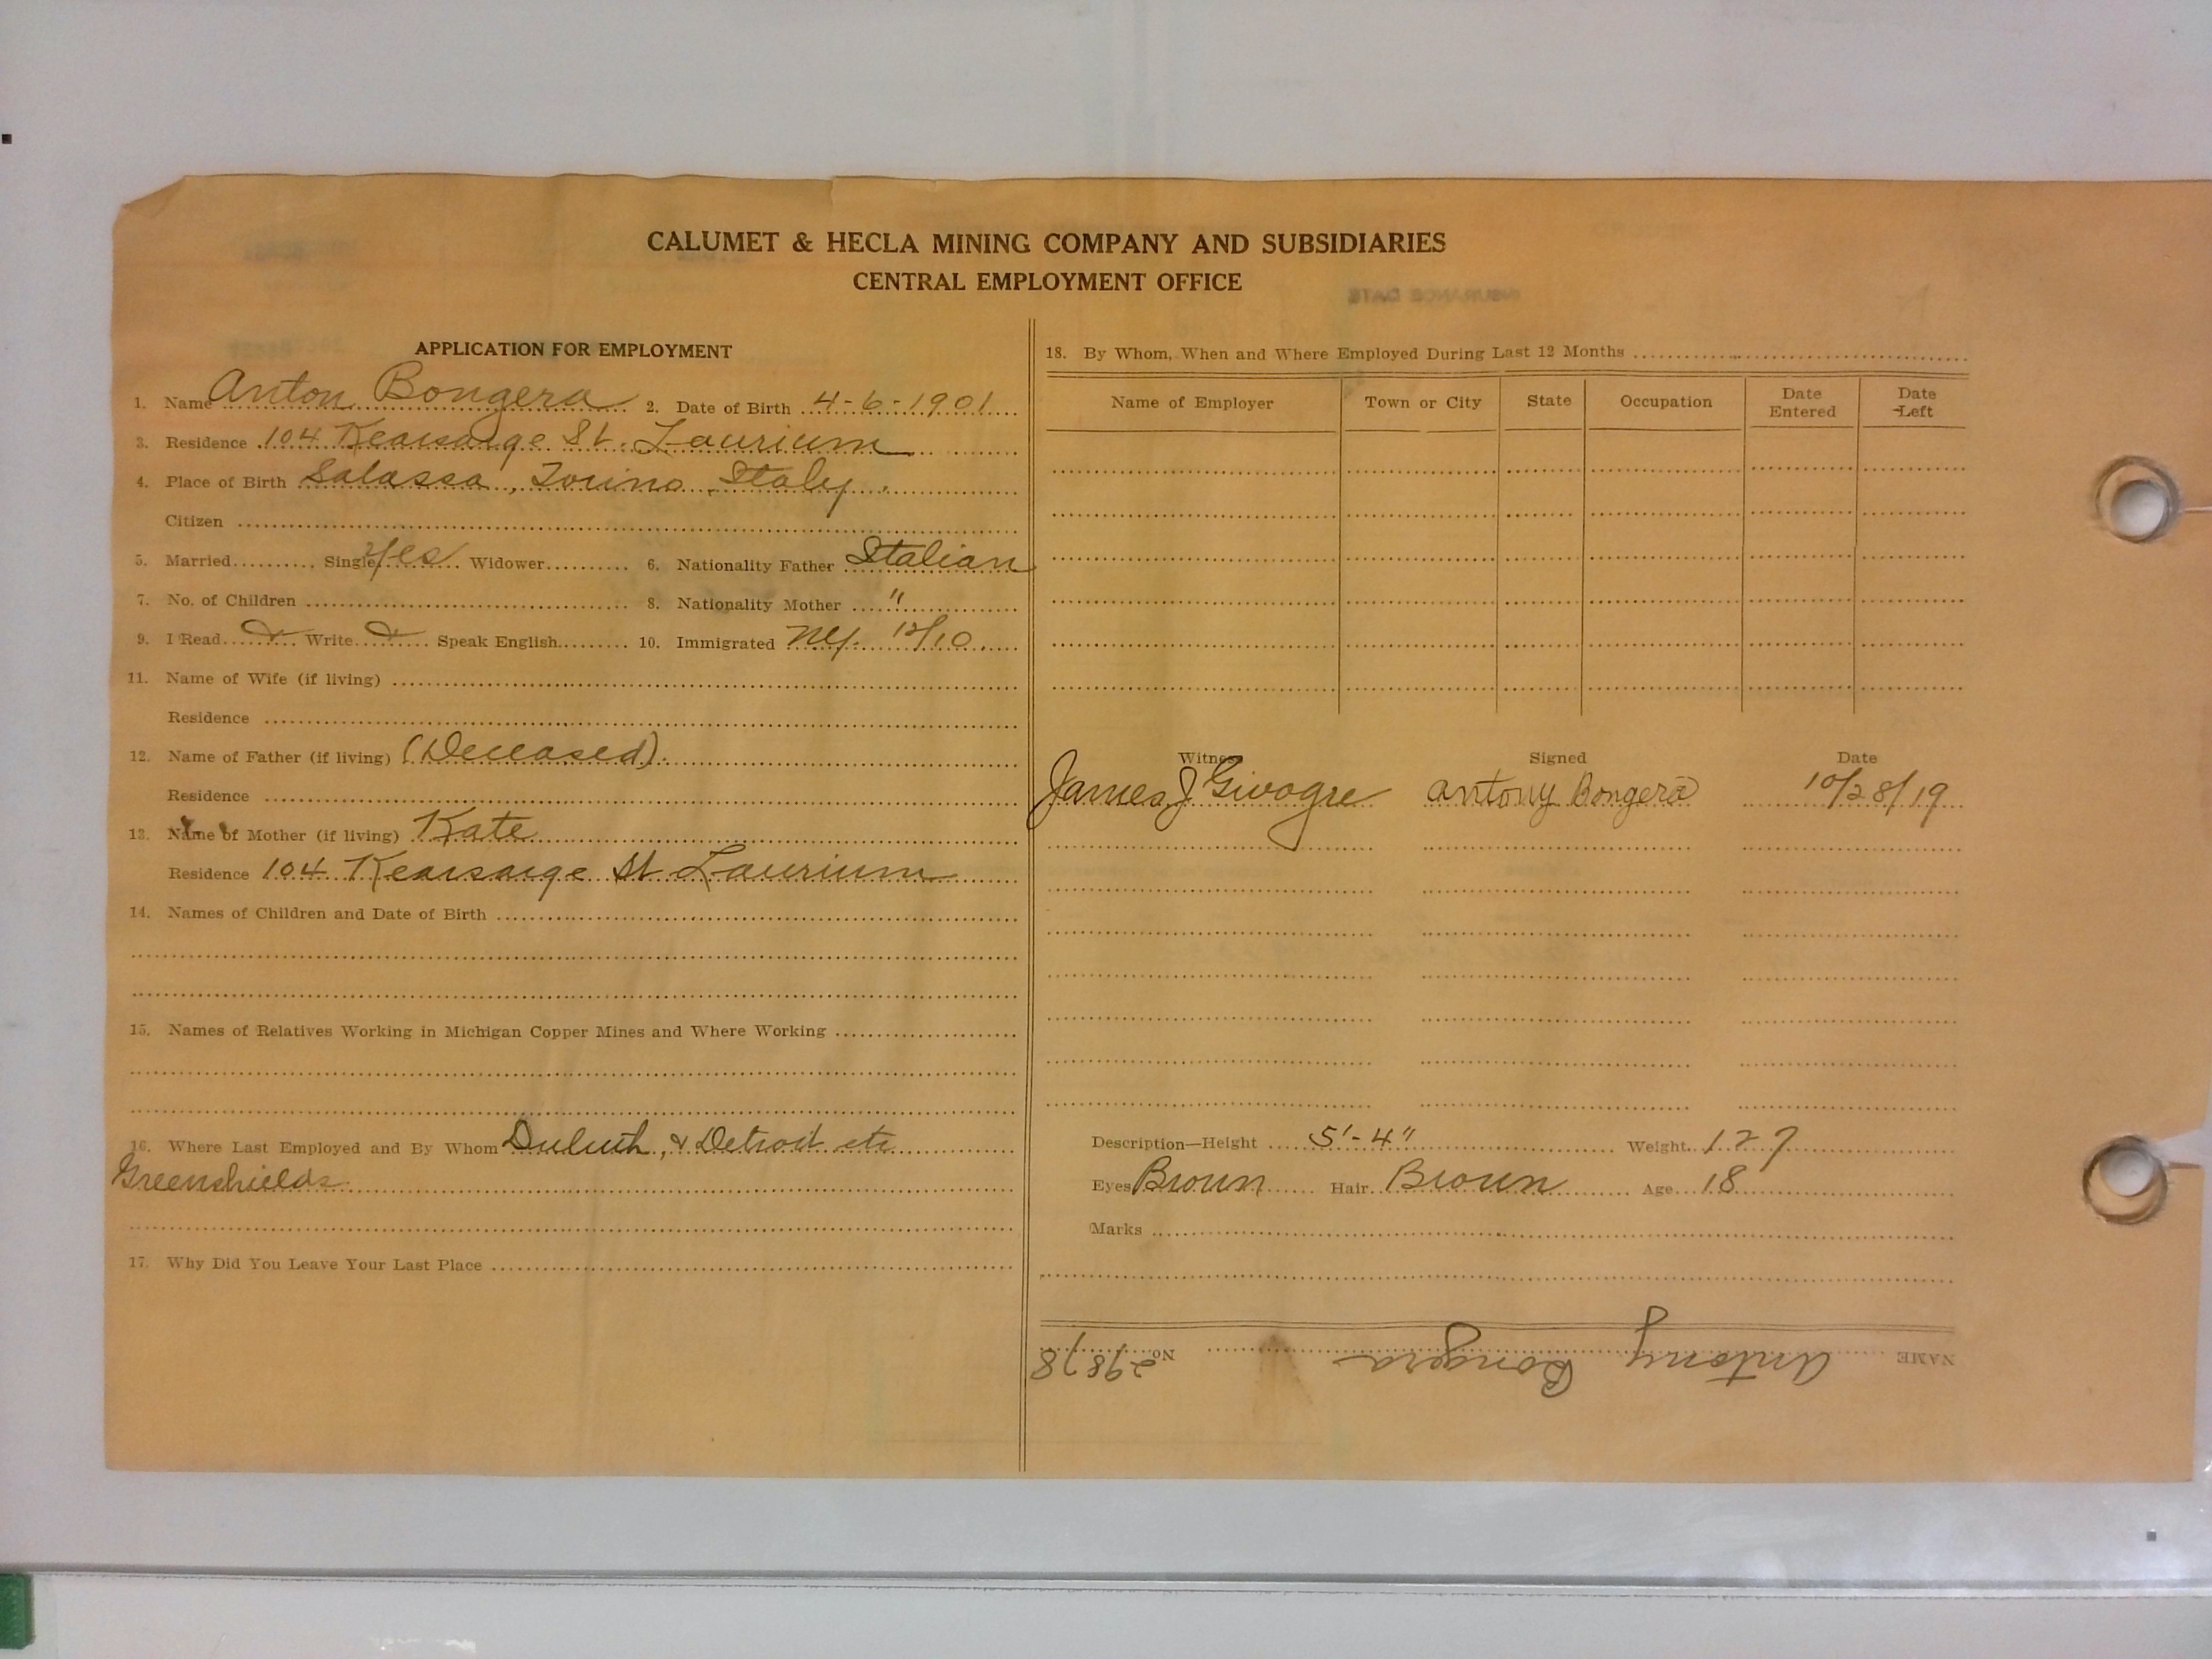 CALUMET & HECLA MINING COMPANY AND SUBSIDIARIES
CENTRAL EMPLOYMENT OFFICE
APPLICATION FOR EMPLOYMENT
1. Name Anton Bongera 2. Date of Birth 4-6-1901
3. Residence 104 Kearsarge St. Laurium
4. Place of Birth Salassa, Torino Italy.
Citizen
5. Married Single Yes Widower 6. Nationality Father Italian
7. No. of Children 8. Nationality Mother "
9. I Read Write Speak English 10. Immigrated NY. 12/10
11. Name of Wife (if living)
Residence
12. Name of Father (if living) (Deceased).
Residence
13. Name of Mother (if living) Kate
Residence 104 Kearsarge St Laurium
14. Names of Children and Date of Birth
15. Names of Relatives Working in Michigan Copper Mines and Where Working
16. Where Last Employed and By Whom Duluth, & Detroit etc
Greenshields
17. Why Did You Leave Your Last Place
18. By Whom, When and Where Employed During Last 12 Months
Name of Employer Town or City State Occupation Date Entered Date Left
Witness Signed Date
James J Givogre Antony Bongera 10/28/19
Description—Height 5'-4" Weight 127
Eyes Brown Hair Brown Age 18
Marks
NAME Antony Bongera No. 29878
INSURANCE DATE